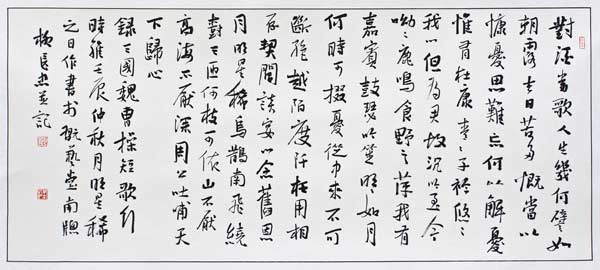 對酒當歌人生幾何譬如
朝露去日苦多慨當以
慷憂思難忘何以解憂
惟有杜康青〻子衿悠〻
我心但為君故沉吟至今
呦〻鹿鳴食野之萍我有
嘉賓鼓瑟吹笙明如月
何時可掇憂從中來不可
斷絕越陌度阡枉用相
存契闊談宴心念舊恩
月明星稀烏鵲南飛繞
樹三匝何枝可依山不厭
高海不厭深周公吐哺天
下歸心
錄三國魏曹操短歌行
時維壬辰仲秋月明星稀
之日作書於藝堂南牕
并記